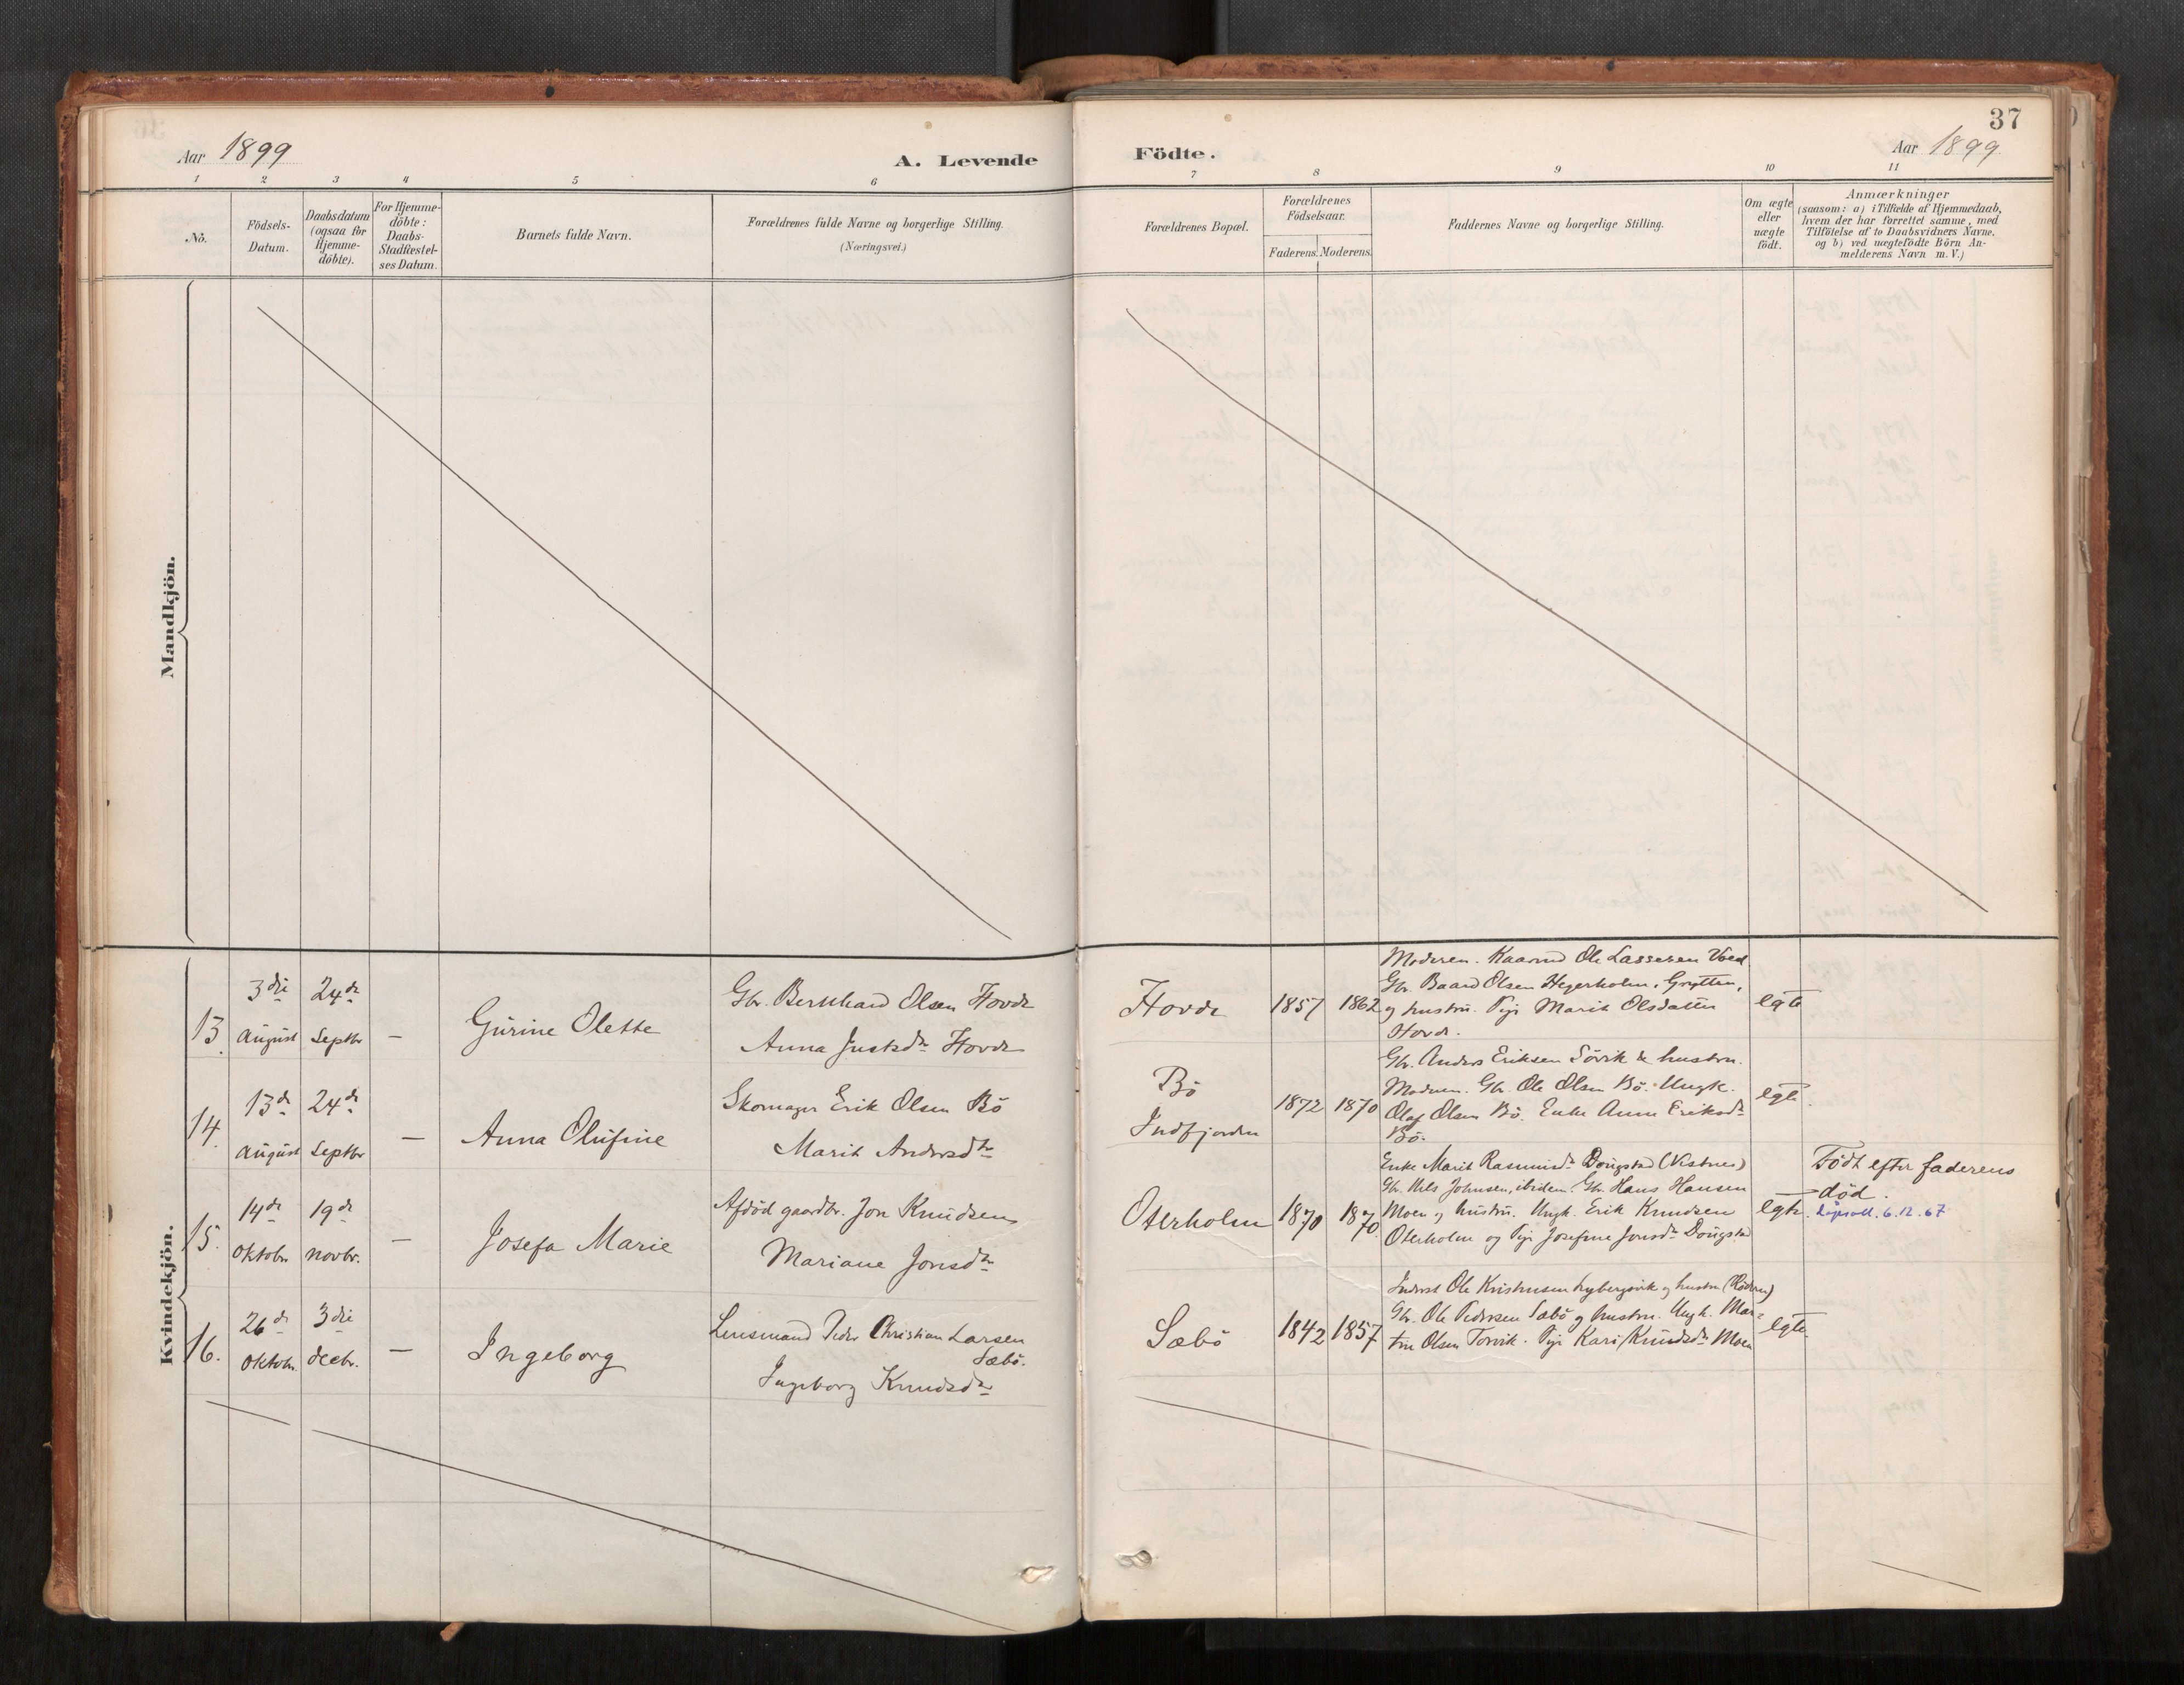 37
Aar 1899
A. Levende
Födte.
Aar 1899
1 2 3 4 5 6 7 8 9 10 11
Nô.
Födsels-
Datum.
Daabsdatum
(ogsaa for
Hjemme-
döbte).
For Hjemme-
döbte:
Daabs-
Stadfæstel-
ses Datum.
Barnets fulde Navn.
Forældrenes fulde Navne og borgerlige Stilling.
(Næringsvei.)
Forældrenes Bopæl.
Forældrenes
Födselsaar.
Faderens. Moderens.
Faddernes Navne og borgerlige Stilling.
Om ægte
eller
uægte
födt.
Anmærkninger
(saasom: a) i Tilfælde af Hjemmedaab,
hvem der har forrettet samme, med
Tilföielse af to Daabsvidners Navne,
og b) ved uægtefödte Börn An-
melderens Navn m. V.)
Mandkjön.
Kvindekjön.
13.
3die
August
24de
Septbr
—
Gurine Olette
Gbr. Bernhard Olsen Hovde
Anna Justsdtr Hovde
Hovde
1857
1862
Moderen. Kaarmd Ole Lassesen Voed
Gbr. Baard Olsen Hegerholm, Grytten,
og hustru. Pige Marit Olsdatter
Hovde.
egte
14.
13de
August
24de
Septbr
—
Anna Olufine
Skomager Erik Olsen Bö
Marit Andersdtr
Bö
Indfjorden
1872
1870
Gbr. Anders Eriksen Sörvik & hustru.
Moderen. Gbr. Ole Olsen Bö. Ungk.
Olaf Olsen Bö. Enke Anne Eriksdtr
Bö.
egte.
15.
14de
Oktobr.
19de
Novbr.
—
Josefa Marie
Afdöd gaardbr. Jon Knudsen
Mariane Jonsdtr
Oterholm
1870
1870.
Enke Marit Rasmusdtr Dougstad (Vistnes)
Gbr. Nils Johnsen, ibidem. Gbr. Hans Hansen
Moen og hustru. Ungk. Erik Knudsen
Oterholm og Pige Josefine Jonsdtr Dougstad
egte.
Födt efter faderens
död.
6.12.67
16.
26de
Oktobr.
3die
Decbr.
—
Ingeborg
Lensmand Peder Christian Larsen
Sæbö.
Ingeborg Knudsdtr
Sæbö
1842
1857
Inderst Ole Kristensen Nybergsvik og hustru (Röden)
Gbr. Ole Pedersen Sæbö og hustru. Ungk. Mar-
tin Olsen Torvik. Pige Kari Knudsdtr Moen
egte.